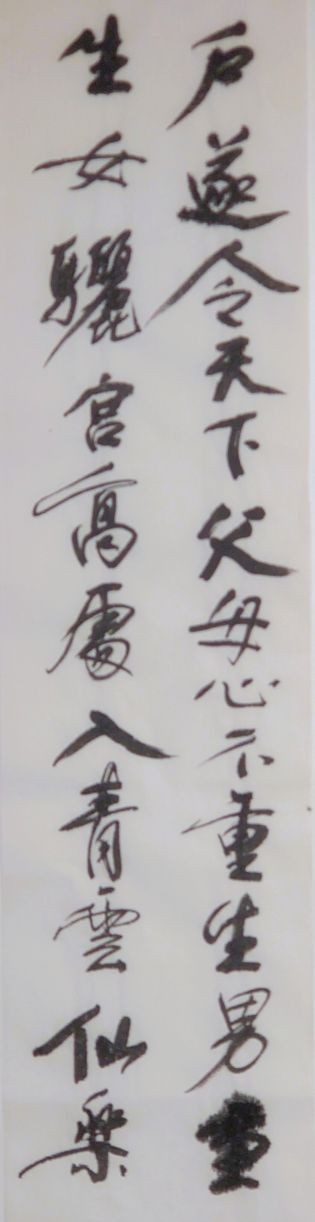 戶遂令天下父母心不重生男重
生女驪宮高處入青雲仙樂